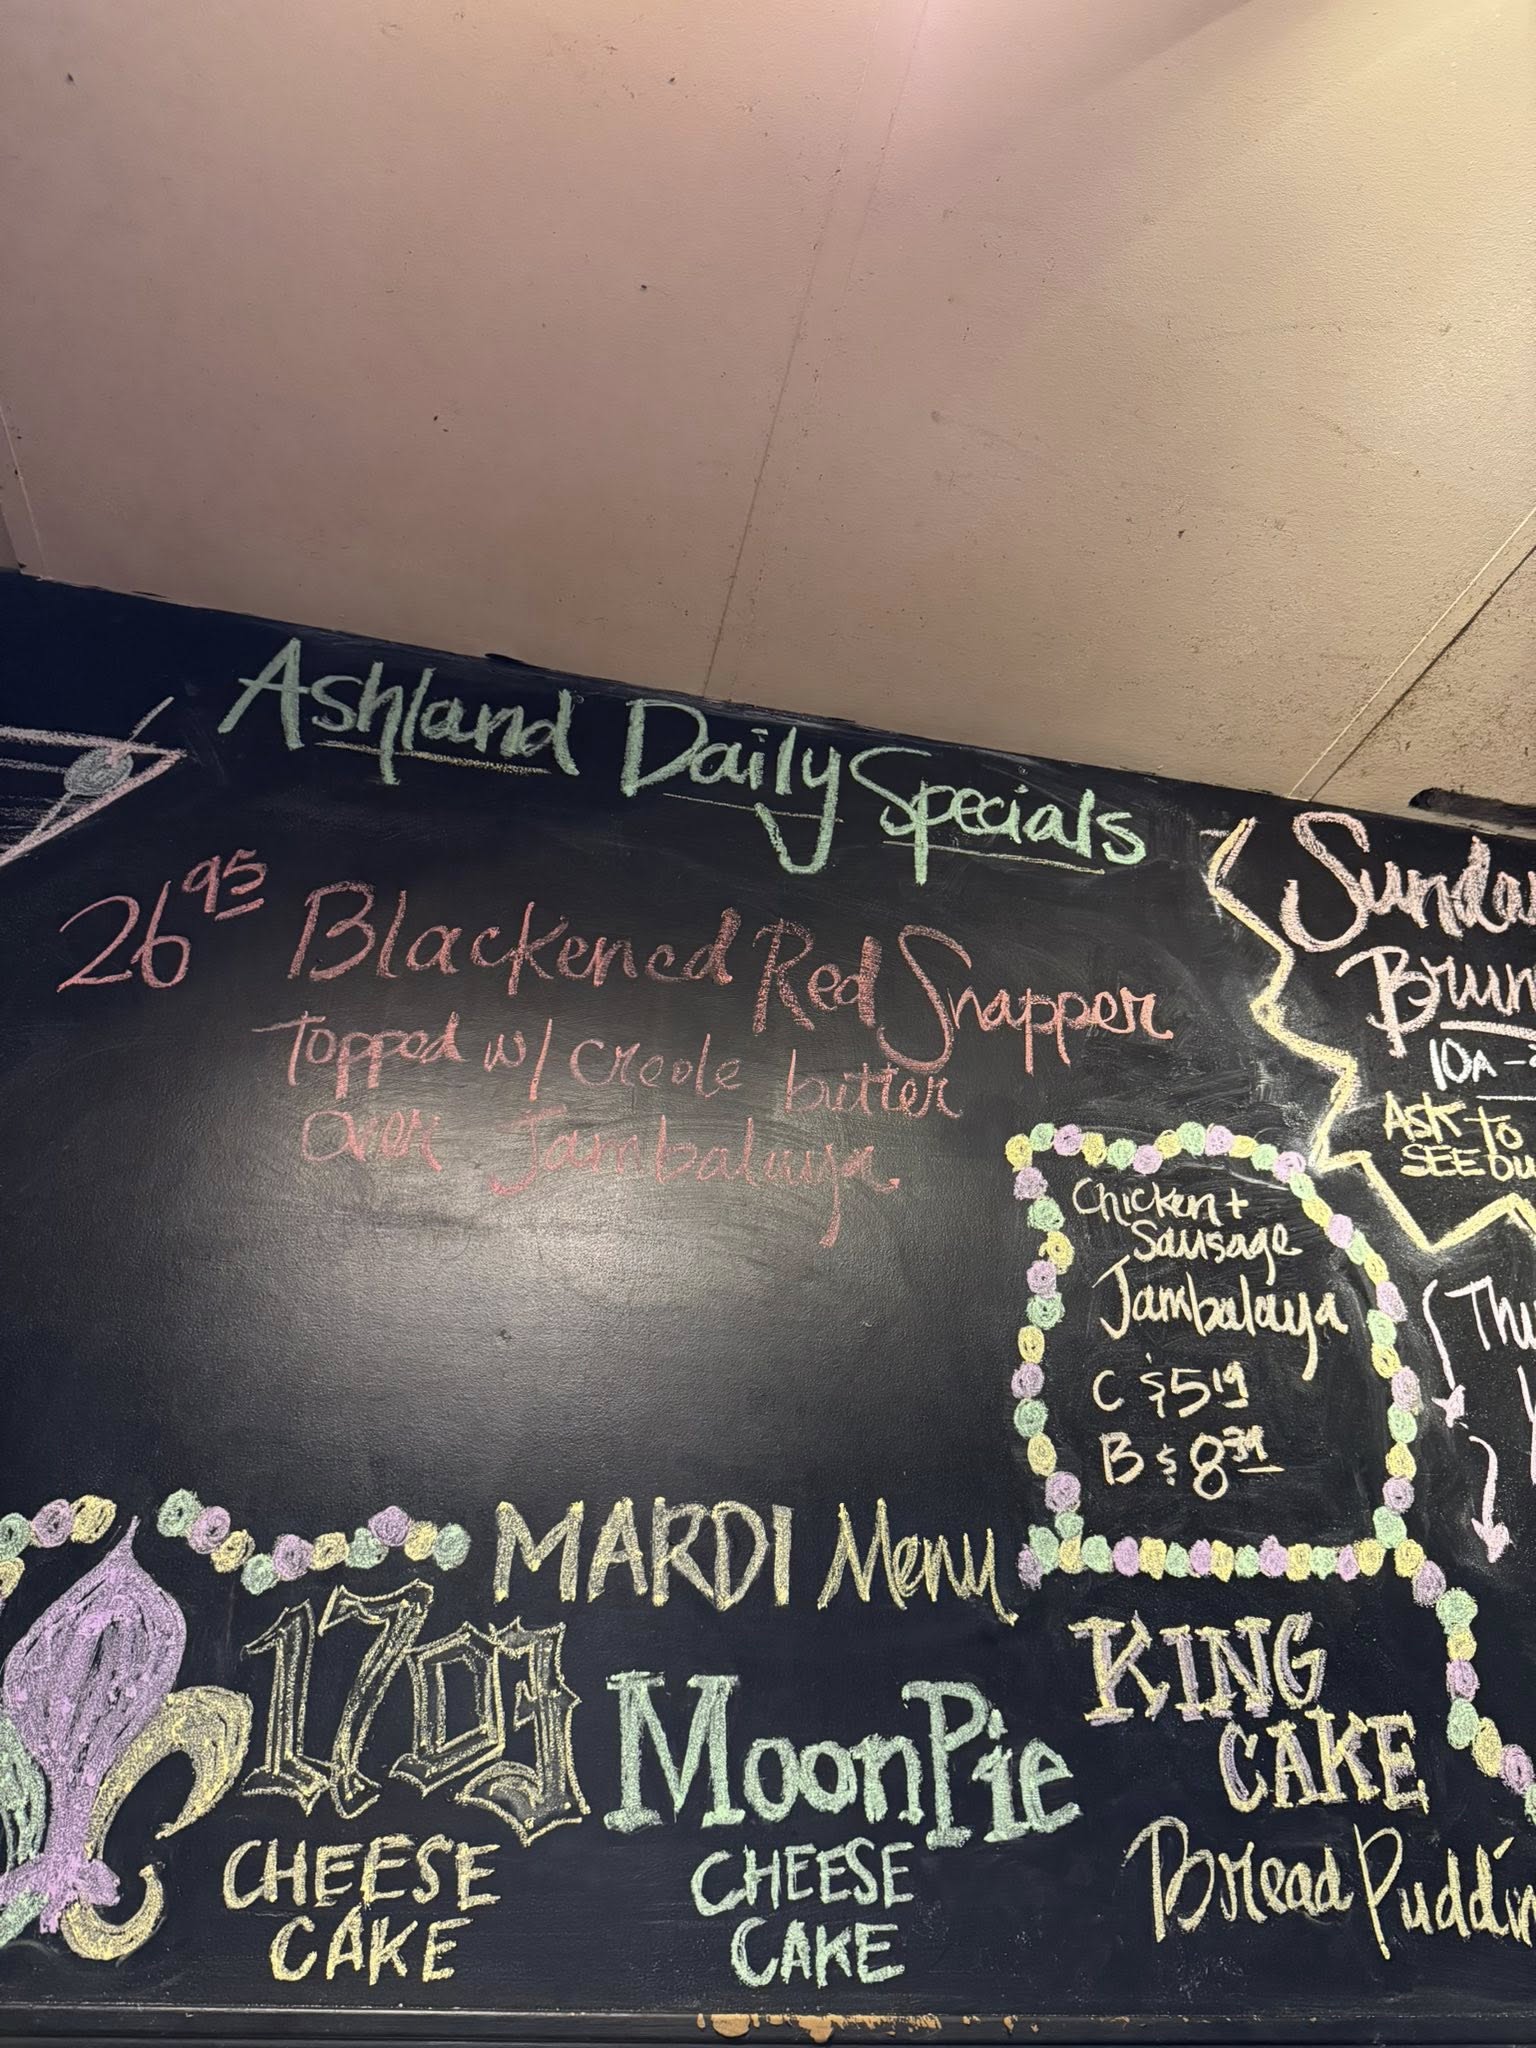 Ashland Daily Specials
26 95 Blackened Red Snapper
Topped w/ creole butter
Over Jambalaya
10A -
ASK to
SEE
Chicken +
Sausage
Jambalaya
C $5 19
B $8 39
MARDI Menu
1703
CHEESE
CAKE
MoonPie
CHEESE
CAKE
KING
CAKE
Bread